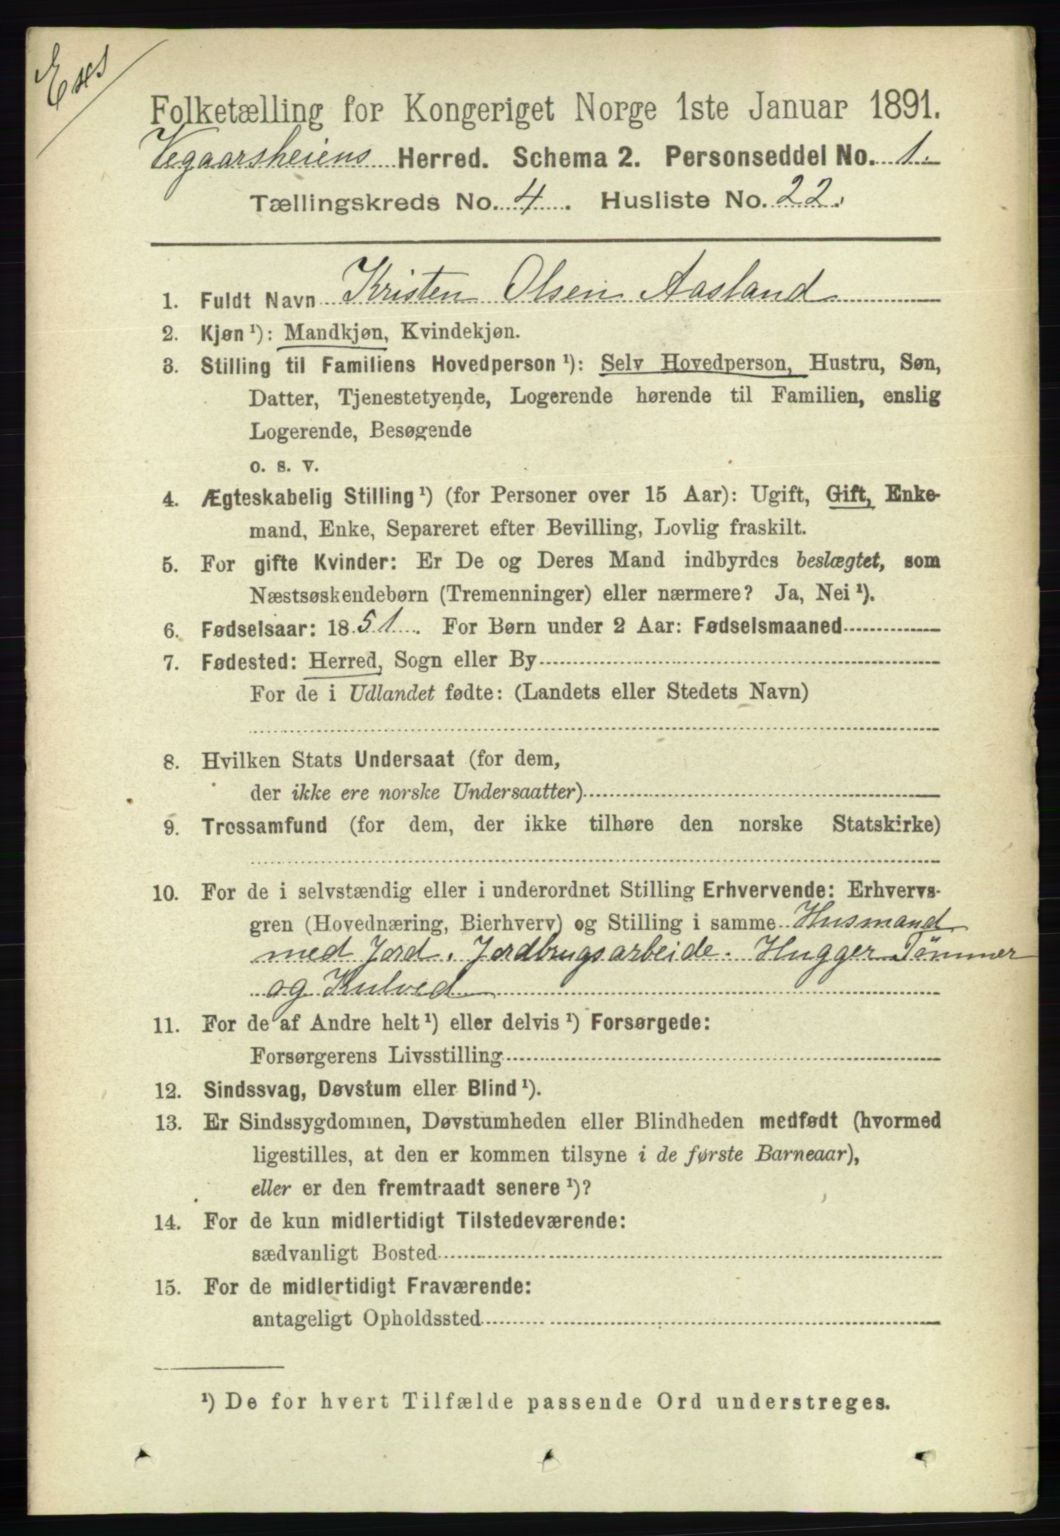 Folketælling for Kongeriget Norge 1ste Januar 1891.
Vegaarsheiens Herred. Schema 2. Personseddel No. 1.
Tællingskreds No. 4. Husliste No. 22.
1. Fuldt Navn Kristen Olsen Aasland
2. Kjøn ¹): Mandkjøn, Kvindekjøn.
3. Stilling til Familiens Hovedperson ¹): Selv Hovedperson, Hustru, Søn,
Datter, Tjenestetyende, Logerende hørende til Familien, enslig
Logerende, Besøgende
o. s. v.
4. Ægteskabelig Stilling ¹) (for Personer over 15 Aar): Ugift, Gift, Enke-
mand, Enke, Separeret efter Bevilling, Lovlig fraskilt.
5. For gifte Kvinder: Er De og Deres Mand indbyrdes beslægtet, som
Næstsøskendebørn (Tremenninger) eller nærmere? Ja, Nei ¹).
6. Fødselsaar: 1851. For Børn under 2 Aar: Fødselsmaaned
7. Fødested: Herred, Sogn eller By
For de i Udlandet fødte: (Landets eller Stedets Navn)
8. Hvilken Stats Undersaat (for dem,
der ikke ere norske Undersaatter)
9. Trossamfund (for dem, der ikke tilhøre den norske Statskirke)
10. For de i selvstændig eller i underordnet Stilling Erhvervende: Erhvervs-
gren (Hovednæring, Bierhverv) og Stilling i samme Husmand
med Jord. Jordbrugsarbeide. Hugger Tømmer
og Kulved
11. For de af Andre helt ¹) eller delvis ¹) Forsørgede:
Forsørgerens Livsstilling
12. Sindssvag, Døvstum eller Blind ¹).
13. Er Sindssygdommen, Døvstumheden eller Blindheden medfødt (hvormed
ligestilles, at den er kommen tilsyne i de første Barneaar),
eller er den fremtraadt senere ¹)?
14. For de kun midlertidigt Tilstedeværende:
sædvanligt Bosted
15. For de midlertidigt Fraværende:
antageligt Opholdssted
¹) De for hvert Tilfælde passende Ord understreges.